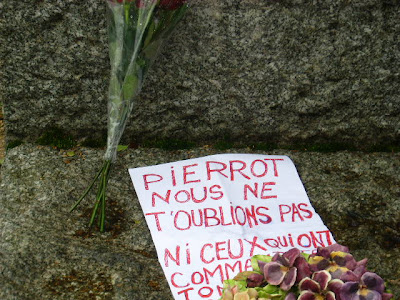 PIERROT
NOUS NE
T'OUBLIONS PAS
NI CEUX QUI ONT
COMME